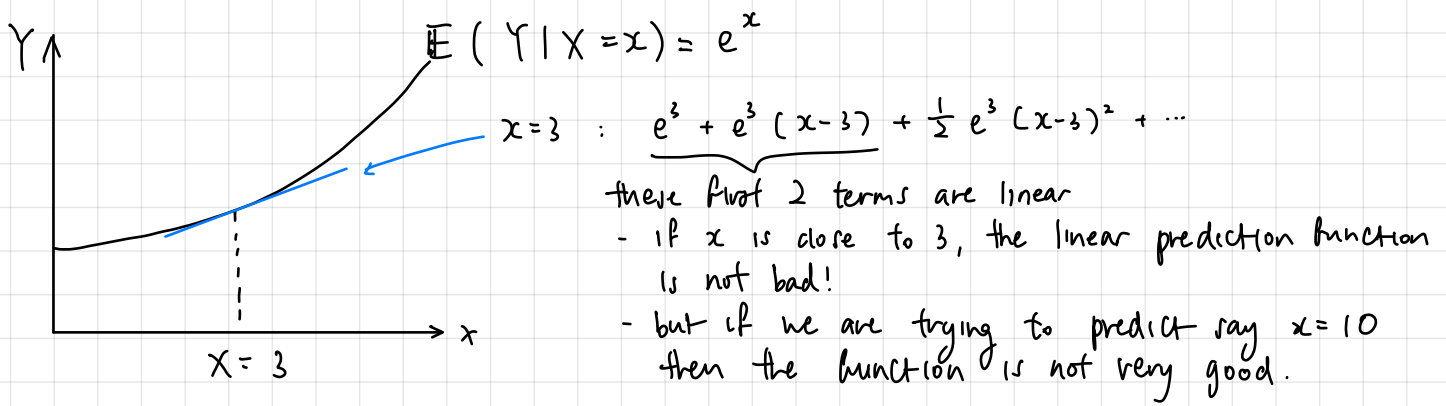 Y
𝔼 ( Y | X = x ) = e^x
x = 3 : e^3 + e^3 (x-3) + 1/2 e^3 (x-3)^2 + ...
these first 2 terms are linear
- if x is close to 3, the linear prediction function
is not bad!
- but if we are trying to predict say x = 10
then the function is not very good.
x
X = 3